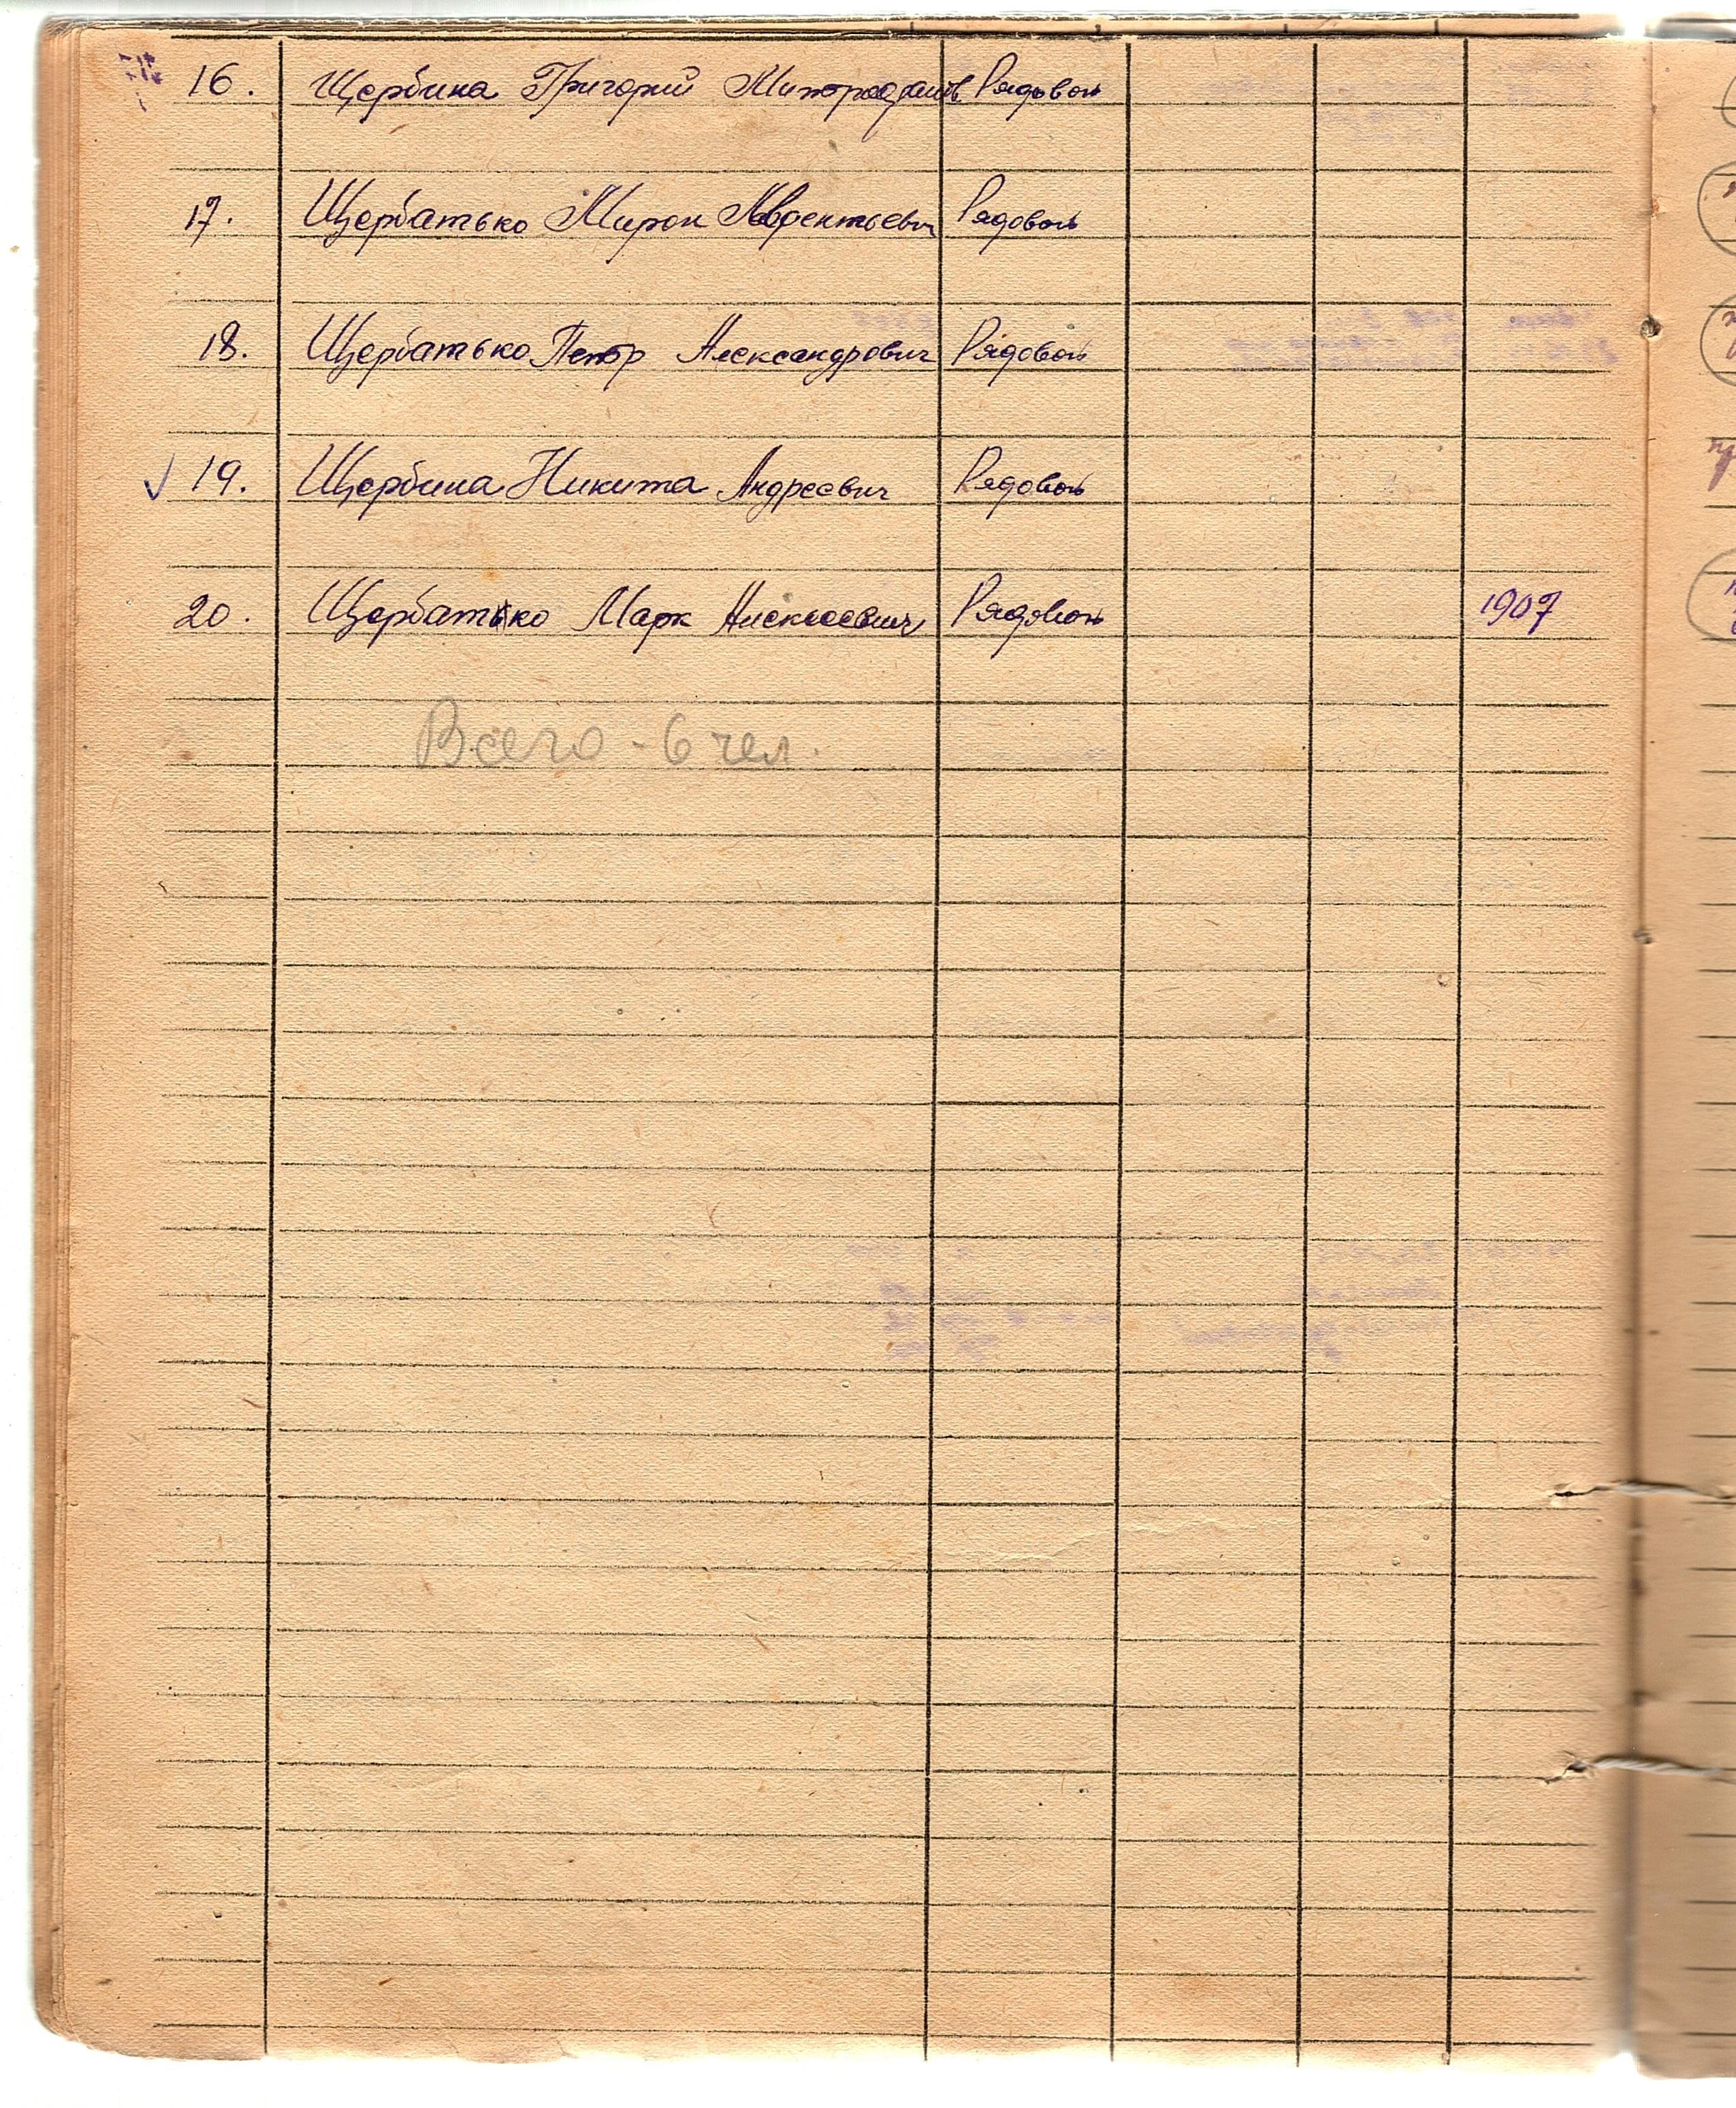 16. Щербина Григорий Рядовой
17. Щербатько Мирон Рядовой
18. Щербатько Петр Александрович Рядовой
19. Щербина Никита Андреевич Рядовой
20. Щербатько Марк Алексеевич Рядовой 1907
Всего - 6 чел.